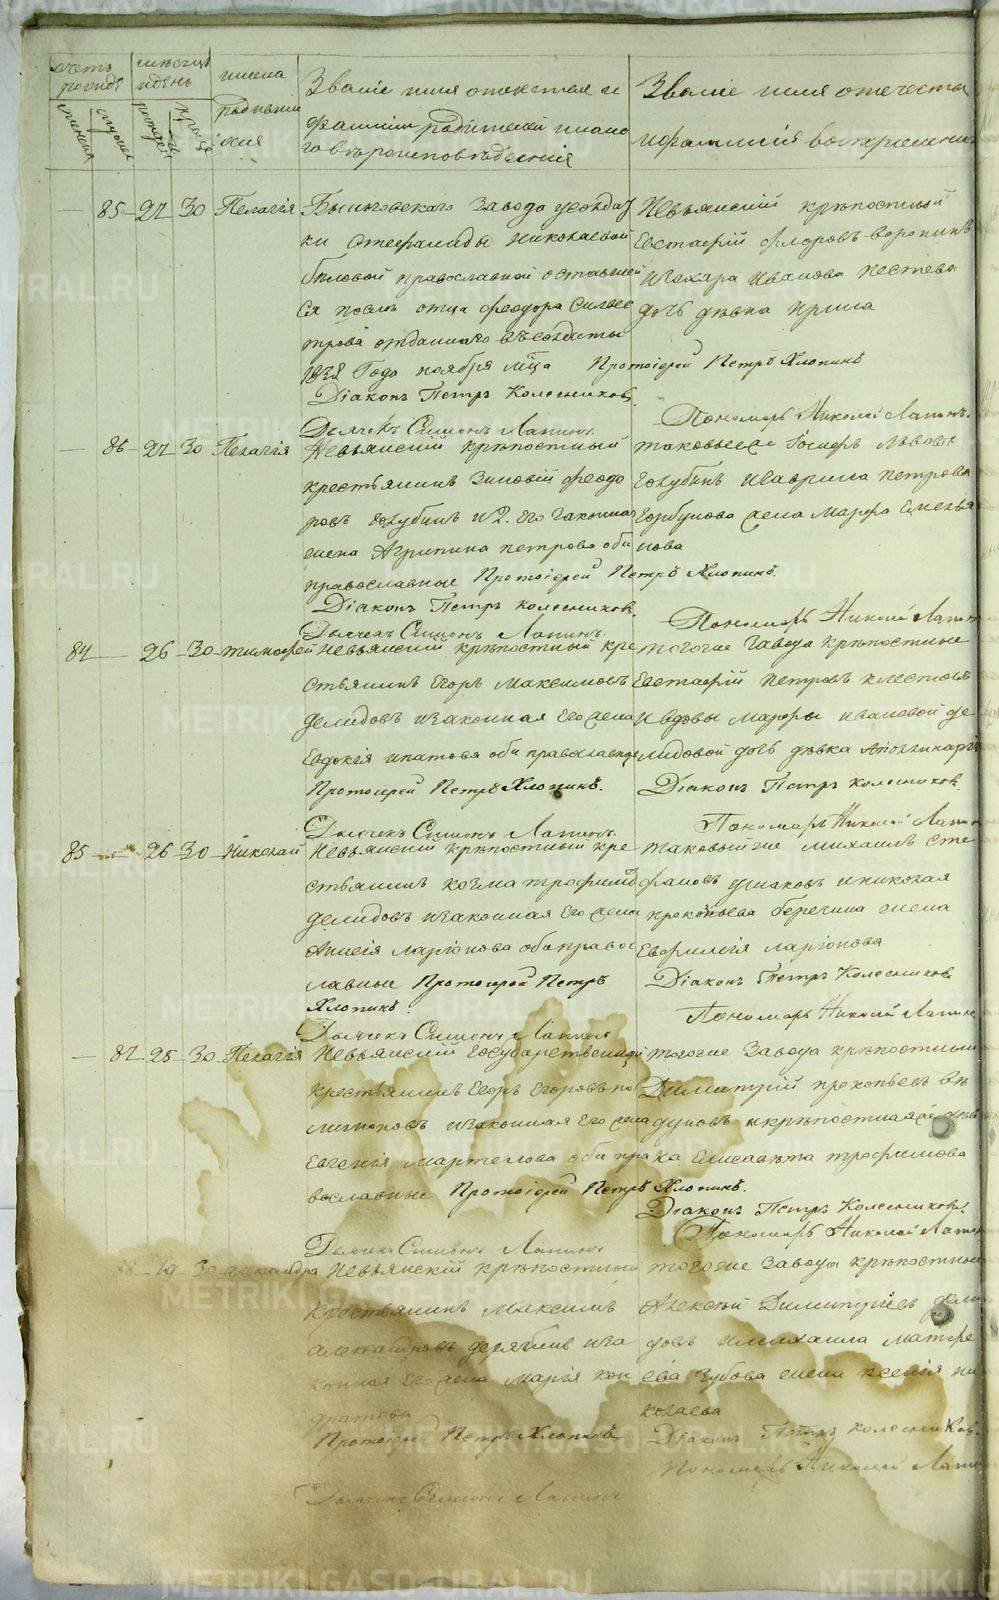 счетъ родивш.
мѣсяцъ и день
имена родившихся
Званіе имя отечество и фамилія родителей и какого вѣроисповѣденія
Званіе имя отечество и фамилія воспріемниковъ
85 27 30 Пелагія
Быньговскаго завода солдатки
Степаниды Николаевой
Бѣловой православной оставшей
ся послѣ отца Феодора Сильвес
трова отданнаго въ солдаты
1828 года ноября м͠ца Протоіерей Петръ Хлопинъ
Діаконъ Петръ Колесниковъ.
Дьячекъ Симонъ Лапинъ
Невьянскій крѣпостный
Евстафій Флоровъ Воронинъ
и Захара Иванова Пестева
дочь дѣвка Ирина
Пономарь Николай Лапинъ.
86 27 30 Пелагія
Невьянскій крѣпостный
крестьянинъ Зиновій Феодо
ровъ Голубинъ и 2. его законная
жена Агрипина Петрова оби
православные Протоіерей Петръ Хлопинъ.
Діаконъ Петръ Колесниковъ.
Дьячекъ Симонъ Лапинъ.
таковые же Іосифъ Львовъ
Голубинъ и Гаврила Петрова
Горбунова жена Марфа Емелья
нова
Пономарь Николай Лапинъ
84 26 30 Тимофей
Невьянскій крѣпостный кре
стьянинъ Егоръ Максимовъ
Демидовъ и законная его жена
Евдокія Ипатова оби православные
Протоіерей Петръ Хлопинъ.
Дьячекъ Симонъ Лапинъ.
того же завода крѣпостные
Евстафій Петровъ Плестовъ
и вдовы Марфы Ивановой Де
мидовой дочь дѣвка Аполлинарія
Діаконъ Петръ Колесниковъ
Пономарь Николай Лапинъ
85 26 30 Николай
Невьянскій крѣпостный кре
стьянинъ Козма Трофимовъ
Демидовъ и законная его жена
Анисія Ларіонова оба правос
лавные Протоіерей Петръ
Хлопинъ.
Дьячекъ Симонъ Лапинъ
таковый же Михаилъ Сте
фановъ Ушаковъ и Николая
Прокопьева Берегина жена
Евфимія Ларіонова
Діаконъ Петръ Колесниковъ
Пономарь Николай Лапинъ
87 25 30 Пелагія
Невьянскій государственный
крестьянинъ Егоръ Егоровъ
и законная его жена
Евгенія Мартемова оби пра
вославные Протоіерей Петръ Хлопинъ.
Дьячекъ Симонъ Лапинъ
того же завода крѣпостный
Димитрій Прокопьевъ
и крѣпостная
Елисавета Трофимова
Діаконъ Петръ Колесниковъ.
Пономарь Николай Лапинъ
88 19 30
Невьянскій крѣпостный
крестьянинъ Максимъ
Александровъ Дерябинъ и за
конная его жена Марья Кон
дратева
Протоіерей Петръ Хлопинъ
Дьячекъ Симонъ Лапинъ
того же завода крѣпостные
Алексѣй Димитріевъ Деми
довъ и Михаила Матфе
ева Зубова жена Ксенія Ни
колаева
Діаконъ Петръ Колесниковъ.
Пономарь Николай Лапинъ
METRIKI.GASO-URAL.RU